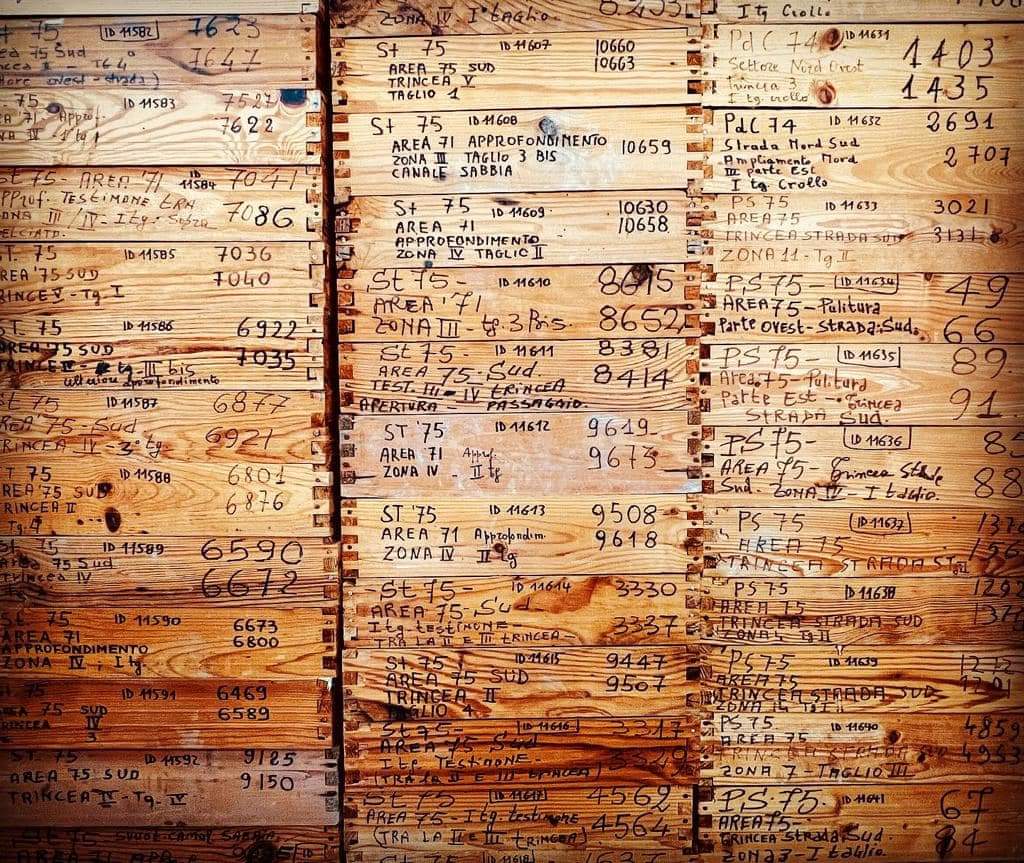 ID 11582 7623
75 Sud 7647
ovest - strada)
75 ID 11583 7527
71 Approf. 7622
St 75 - AREA '71 ID 11584 7041
TESTIMONE TRA 7086
III / IV - I tg.
T. 75 ID 11585 7036
REA '75 SUD 7040
RINCE V - Tg I
T. 75 ID 11586 6922
AREA '75 SUD 7035
tg. III bis
ulteriou approfondimento
St 75 ID 11587 6877
75 - Sud 6921
RINCEA IV - 3° tg
T 75 ID 11588 6801
REA '75 SUD 6876
TRINCEA II
Tg. 4
St 75 ID 11589 6590
75 Sud 6672
Trincea IV
St. 75 ID 11590 6673
AREA 71 6800
APPROFONDIMENTO
ZONA IV, I tg.
75 ID 11591 6469
75 SUD 6589
IV
3
ST. 75 ID 11592 9125
AREA 75 SUD 9150
TRINCEA II - Tg. IV
ZONA IV I taglio.
St 75 ID 11607 10660
AREA 75 SUD 10663
TRINCEA V
TAGLIO 1
St 75 ID 11608
AREA 71 APPROFONDIMENTO 10659
ZONA III TAGLIO 3 BIS
CANALE SABBIA
St 75 ID 11609 10630
AREA 71 10658
APPROFONDIMENTO
ZONA IV TAGLIO II
St 75 - ID 11610 8615
AREA '71 8652
ZONA III - tg. 3 Bis.
St 75 - ID 11611 8381
AREA 75 - Sud. 8414
TEST. III - IV trincea
APERTURA - PASSAGGIO.
ST '75 ID 11612 9619
AREA '71 Appr. 9673
ZONA IV II tg
ST '75 ID 11613 9508
AREA 71 Approfondim. 9618
ZONA IV II tg
St 75 - ID 11614 3330
AREA 75 - Sud 3337
I tg testimone -
TRA LA II E III trincea -
St 75 ID 11615 9447
AREA 75 SUD 9507
TRINCEA II
TAGLIO 4
St 75 - ID 11616 3317
AREA 75 Sud 3329
I tg Testimone -
(TRA LA II E III trincea)
St 75 - ID 11617 4562
AREA 75 - I tg. testimone 4564
(TRA LA II E III trincea)
I tg Crollo
PdC 74 ID 11631 1403
Settore Nord Ovest 1435
Trincea 3
I tg. crollo
PdC 74 ID 11632 2691
Strada Nord Sud 2707
Ampliamento Nord
III parte Est
I tg. Crollo
PS 75 ID 11633 3021
AREA 75 3131
TRINCEA STRADA SUD
ZONA 11 - Tg II
PS 75 - ID 11634 49
AREA 75 - Pulitura 66
Parte ovest - STRADA Sud.
PS 75 - ID 11635 89.
Area 75 - Pulitura 91
Parte Est - trincea
STRADA Sud.
PS 75 - ID 11636
AREA 75 - trincea Strada 88
Sud. ZONA IV - I taglio.
PS 75 ID 11637
AREA 75
TRINCEA STRADA
PS 75 ID 11638
AREA 75
TRINCEA STRADA SUD
PS 75 ID 11639
AREA 75
TRINCEA STRADA SUD
PS 75 ID 11640 4859
AREA 75 4953
TRINCEA STRADA SUD
ZONA 7 - TAGLIO III
PS 75. ID 11641 67
AREA 75 - 84
trincea Strada Sud.
ZONA 3 - I taglio.